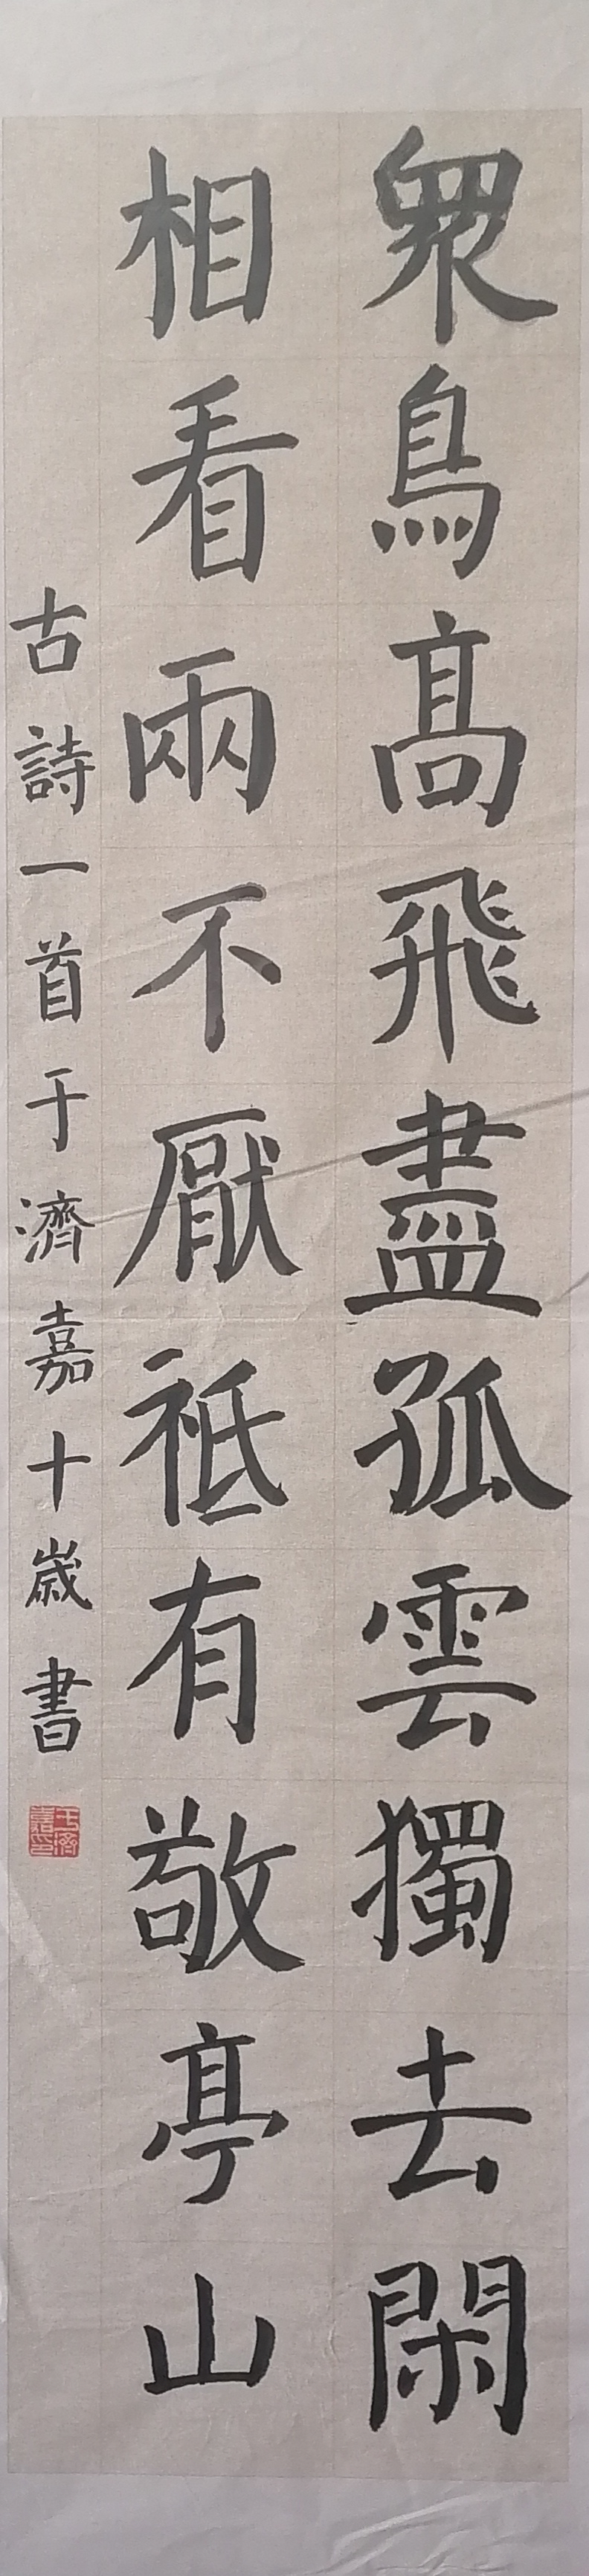 眾鳥髙飛盡孤雲獨去閑
相看兩不厭祗有敬亭山
古詩一首于濟嘉十歲書
于濟嘉印